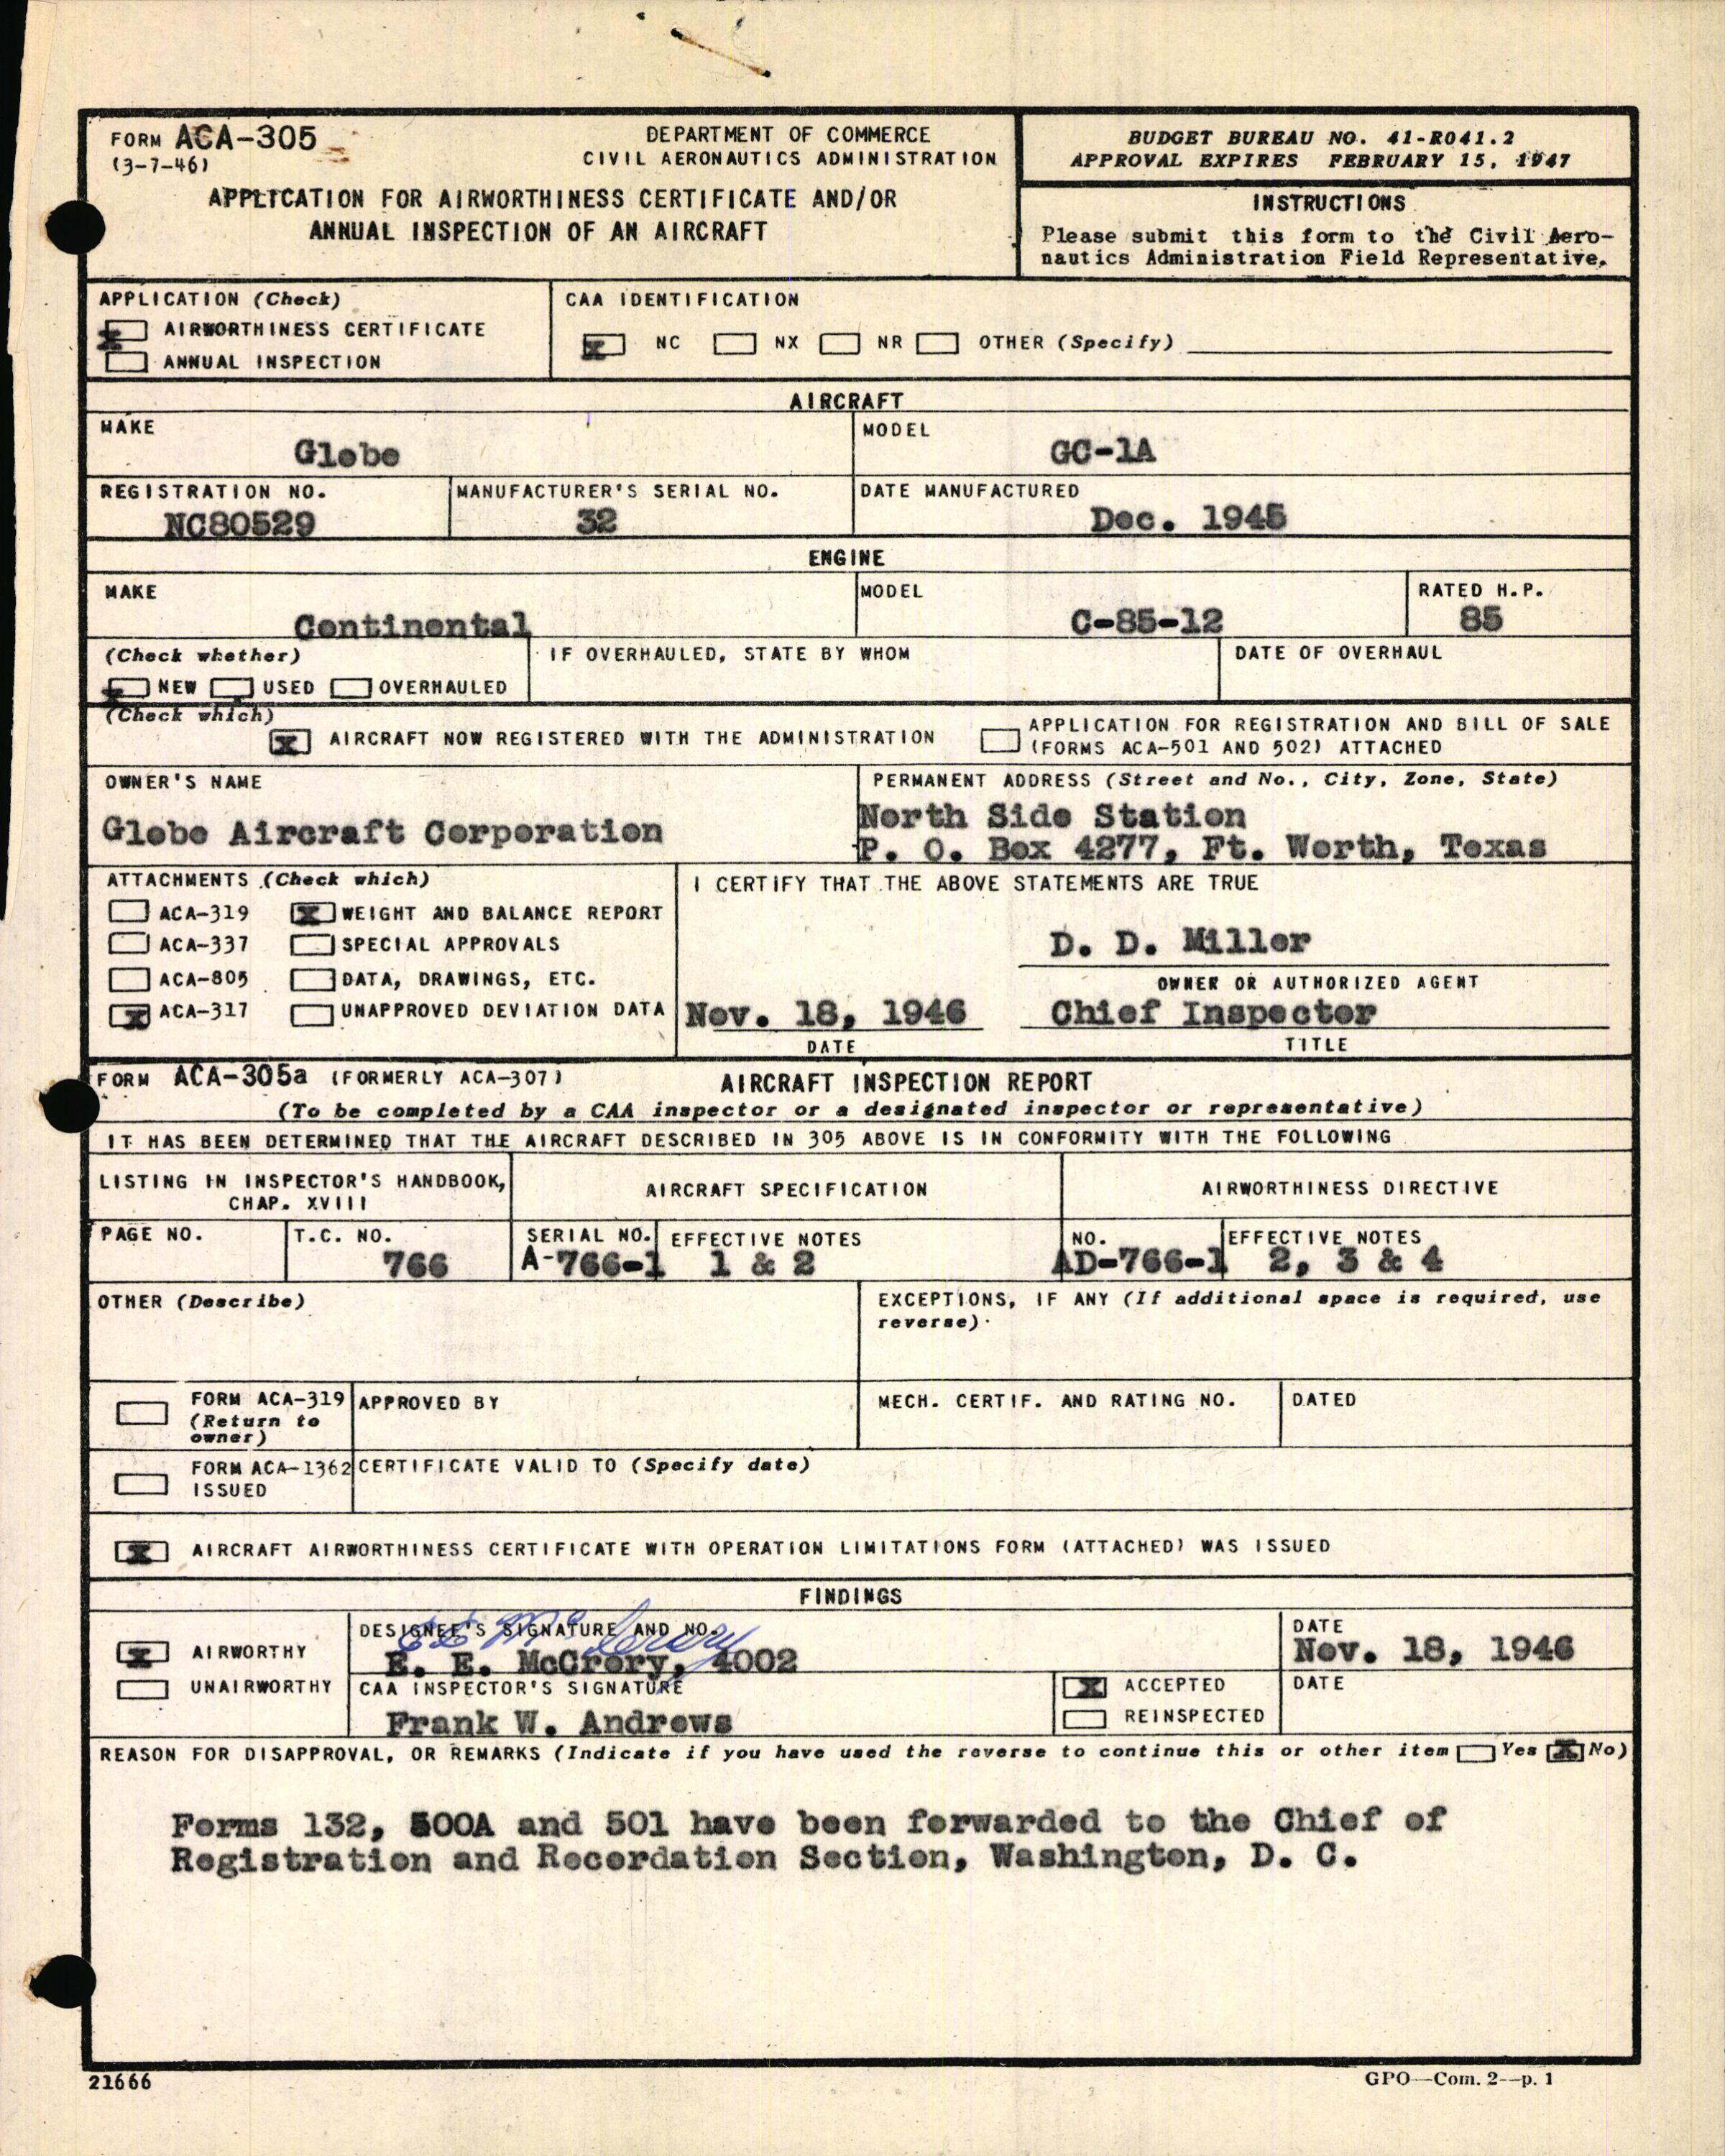 FORM ACA-305
(3-7-46)
DEPARTMENT OF COMMERCE
CIVIL AERONAUTICS ADMINISTRATION
APPLICATION FOR AIRWORTHINESS CERTIFICATE AND/OR
ANNUAL INSPECTION OF AN AIRCRAFT
BUDGET BUREAU NO. 41-R041.2
APPROVAL EXPIRES FEBRUARY 15, 1947
INSTRUCTIONS
Please submit this form to the Civil Aero-
nautics Administration Field Representative.
APPLICATION (Check)
X AIRWORTHINESS CERTIFICATE
ANNUAL INSPECTION
CAA IDENTIFICATION
X NC NX NR OTHER (Specify)
AIRCRAFT
MAKE
Globe
MODEL
GC-1A
REGISTRATION NO.
NC80529
MANUFACTURER'S SERIAL NO.
32
DATE MANUFACTURED
Dec. 1945
ENGINE
MAKE
Continental
MODEL
C-85-12
RATED H.P.
85
(Check whether)
X NEW USED OVERHAULED
IF OVERHAULED, STATE BY WHOM
DATE OF OVERHAUL
(Check which)
X AIRCRAFT NOW REGISTERED WITH THE ADMINISTRATION
APPLICATION FOR REGISTRATION AND BILL OF SALE
(FORMS ACA-501 AND 502) ATTACHED
OWNER'S NAME
Globe Aircraft Corporation
PERMANENT ADDRESS (Street and No., City, Zone, State)
North Side Station
P. O. Box 4277, Ft. Worth, Texas
ATTACHMENTS (Check which)
ACA-319 X WEIGHT AND BALANCE REPORT
ACA-337 SPECIAL APPROVALS
ACA-805 DATA, DRAWINGS, ETC.
X ACA-317 UNAPPROVED DEVIATION DATA
I CERTIFY THAT THE ABOVE STATEMENTS ARE TRUE
D. D. Miller
OWNER OR AUTHORIZED AGENT
Nov. 18, 1946 Chief Inspector
DATE TITLE
FORM ACA-305a (FORMERLY ACA-307) AIRCRAFT INSPECTION REPORT
(To be completed by a CAA inspector or a designated inspector or representative)
IT HAS BEEN DETERMINED THAT THE AIRCRAFT DESCRIBED IN 305 ABOVE IS IN CONFORMITY WITH THE FOLLOWING
LISTING IN INSPECTOR'S HANDBOOK,
CHAP. XVIII
AIRCRAFT SPECIFICATION
AIRWORTHINESS DIRECTIVE
PAGE NO.
T.C. NO.
766
SERIAL NO.
A-766-1
EFFECTIVE NOTES
1 & 2
NO.
AD-766-1
EFFECTIVE NOTES
2, 3 & 4
OTHER (Describe)
EXCEPTIONS, IF ANY (If additional space is required, use
reverse).
FORM ACA-319
(Return to
owner)
APPROVED BY
MECH. CERTIF. AND RATING NO.
DATED
FORM ACA-1362
ISSUED
CERTIFICATE VALID TO (Specify date)
X AIRCRAFT AIRWORTHINESS CERTIFICATE WITH OPERATION LIMITATIONS FORM (ATTACHED) WAS ISSUED
FINDINGS
X AIRWORTHY
UNAIRWORTHY
DESIGNEE'S SIGNATURE AND NO.
E E McCrory
E. E. McCrory, 4002
DATE
Nov. 18, 1946
CAA INSPECTOR'S SIGNATURE
Frank W. Andrews
X ACCEPTED
REINSPECTED
DATE
REASON FOR DISAPPROVAL, OR REMARKS (Indicate if you have used the reverse to continue this or other item Yes X No)
Forms 132, 500A and 501 have been forwarded to the Chief of
Registration and Recordation Section, Washington, D. C.
21666
GPO—Com. 2--p. 1